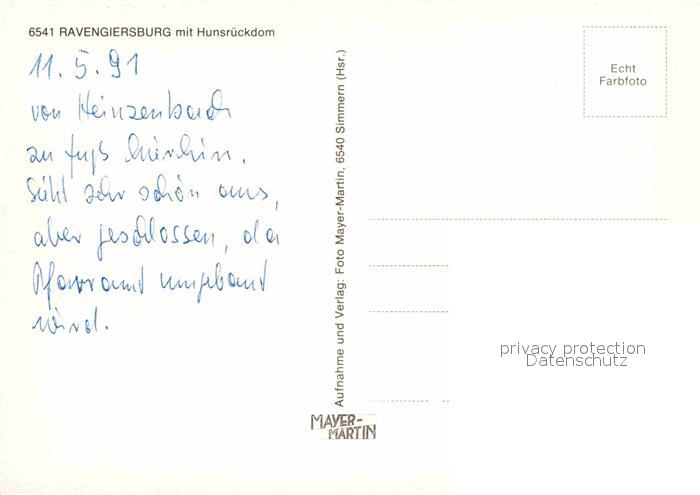 6541 RAVENGIERSBURG mit Hunsrückdom
11.5.91
von Heinzenbach
zu Fuß hierhin.
Sieht sehr schön aus,
aber geschlossen, da
Pfarramt umgebaut
wird.
Aufnahme und Verlag: Foto Mayer-Martin, 6540 Simmern (Hsr.)
MAYER-
MARTIN
Echt
Farbfoto
privacy protection
Datenschutz